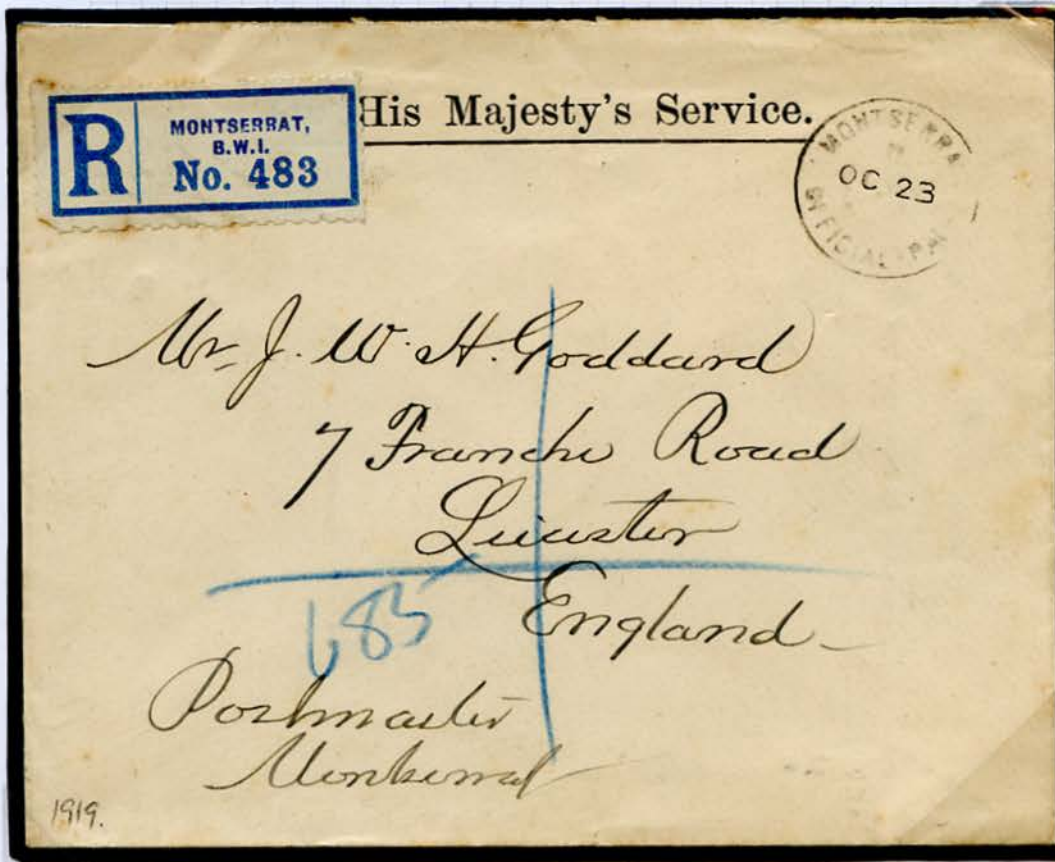 R
MONTSERRAT,
B.W.I.
No. 483
His Majesty's Service.
MONTSERRA
OC 23
OFFICIAL PAI
Mr J. W. H. Goddard
7 Franche Road
Leicester
England
683
Postmaster
Montserrat
1919.